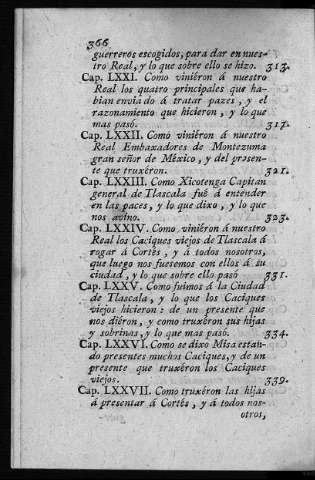 366
guerreros escogidos, para dar en nues-
tro Real, y lo que sobre ello se hizo. 313.
Cap. LXXI. Como viniéron á nuestro
Real los quatro principales que ha-
bian enviado á tratar pazes, y el
razonamiento que hicieron, y lo que
mas pasó. 317.
Cap. LXXII. Como viniéron á nuestro
Real Embaxadores de Montezuma
gran señor de México, y del presen-
te que truxéron. 321.
Cap. LXXIII. Como Xicotenga Capitan
general de Tlascala fué á entender
en las paces, y lo que dixo, y lo que
nos avino. 323.
Cap. LXXIV. Como viniéron á nuestro
Real los Caciques viejos de Tlascala á
rogar á Cortés, y á todos nosotros,
que luego nos fuesemos con ellos á su
ciudad, y lo que sobre ello pasó 331.
Cap. LXXV. Como fuimos á la Ciudad
de Tlascala, y lo que los Caciques
viejos hicieron: de un presente que
nos diéron, y como truxéron sus hijas
y sobrinas, y lo que mas pasó. 334.
Cap. LXXVI. Como se dixo Misa estan-
do presentes muchos Caciques, y de un
presente que truxéron los Caciques
viejos. 339.
Cap. LXXVII. Como truxéron las hijas
á presentar á Cortés, y á todos nos-
otros,